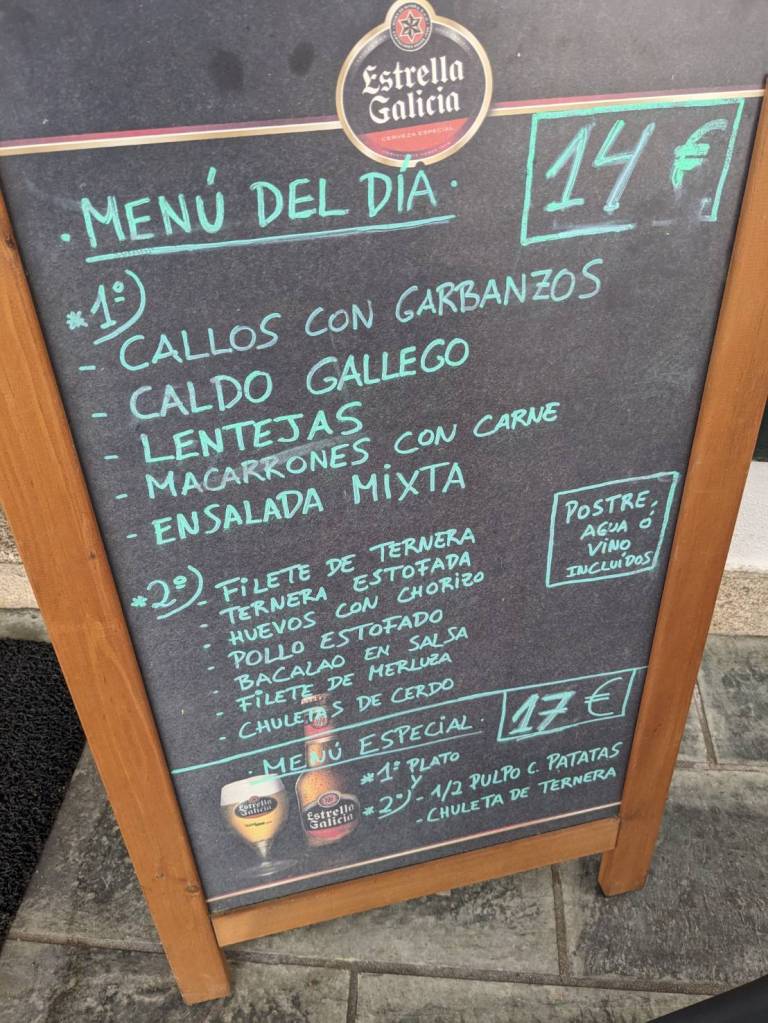 Estrella
Galicia
CERVEZA ESPECIAL
14 €
· MENÚ DEL DÍA ·
*1º)
- CALLOS CON GARBANZOS
- CALDO GALLEGO
- LENTEJAS
- MACARRONES CON CARNE
- ENSALADA MIXTA
POSTRE,
AGUA Ó
VINO
INCLUÍDOS
*2º)
- FILETE DE TERNERA
- TERNERA ESTOFADA
- HUEVOS CON CHORIZO
- POLLO ESTOFADO
- BACALAO EN SALSA
- FILETE DE MERLUZA
- CHULETAS DE CERDO
· MENÚ ESPECIAL ·
17 €
*1º PLATO
Y
*2º) - 1/2 PULPO C. PATATAS
- CHULETA DE TERNERA
Estrella
Galicia
Estrella
Galicia